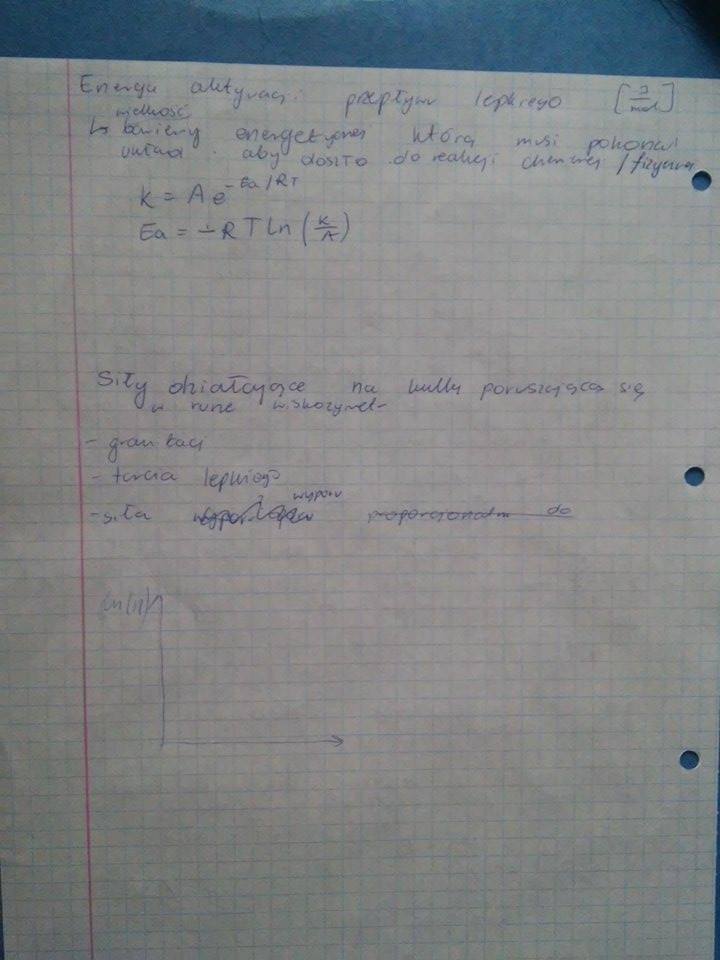 Energia aktywacji przepływu lepkiego [J/mol]
wielkość
↳ bariery energetycznej którą musi pokonać
układ aby doszło do reakcji chemicznej / fizycznej
k = A e^-Ea/RT
Ea = -RT Ln (k/A)
Siły działające na kulkę poruszającą się
w rurze wiskozymet-
- grawitacji
- tarcia lepkiego
wyporu
- siła proporcjonalna do
ln(η)